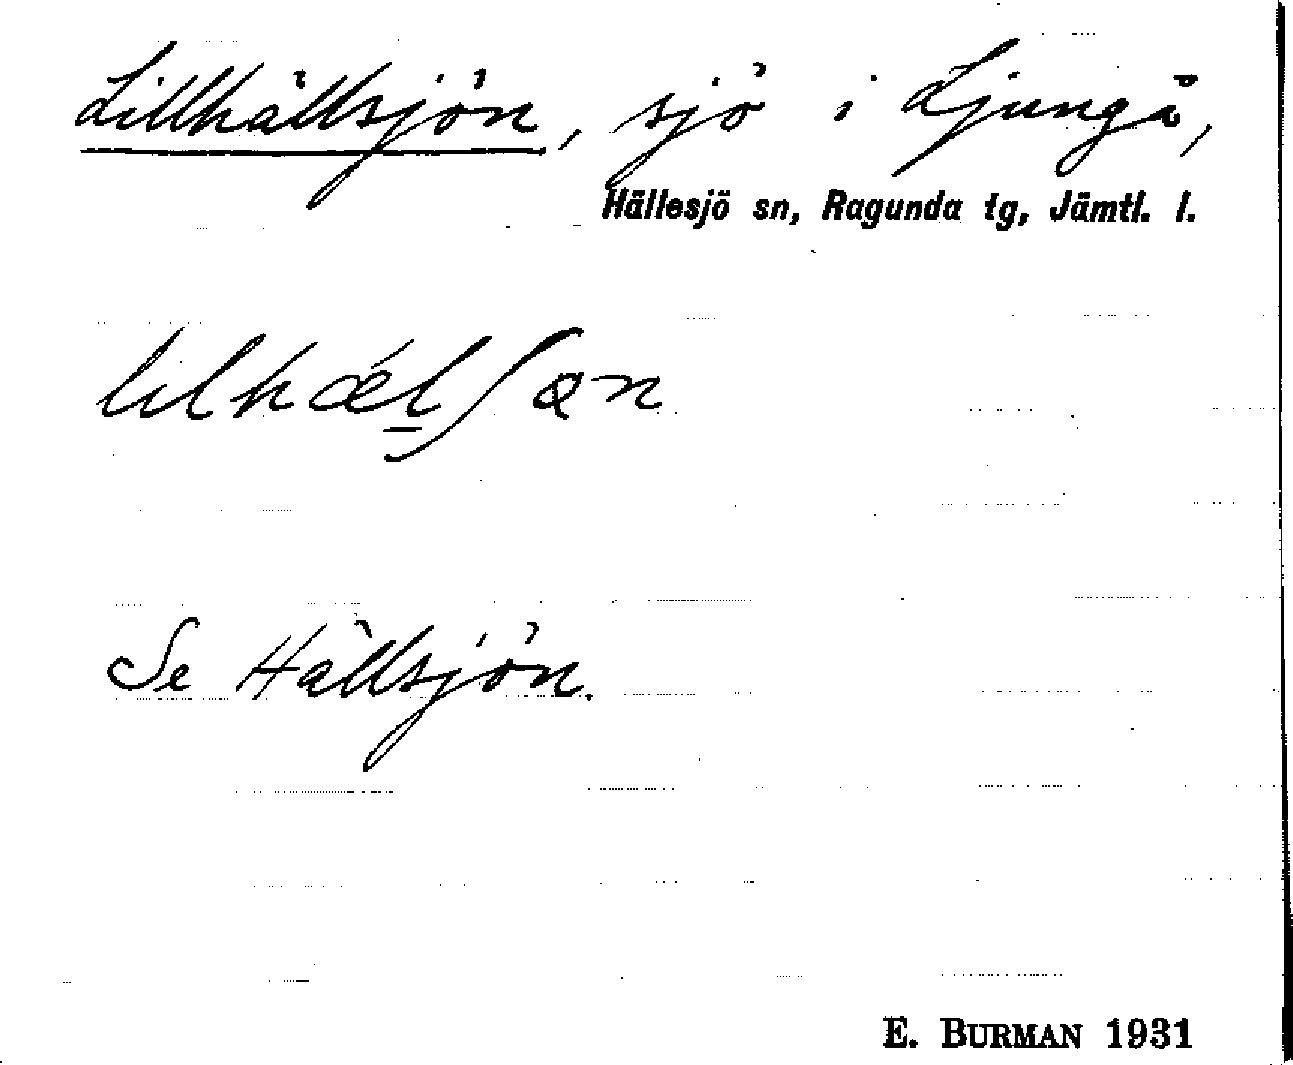 Lillhällsjön, sjö i Ljungå,
Hällesjö sn, Ragunda tg, Jämtl. l.
lilhǽl̲ʃan
Se Hällsjön.
E. BURMAN 1931